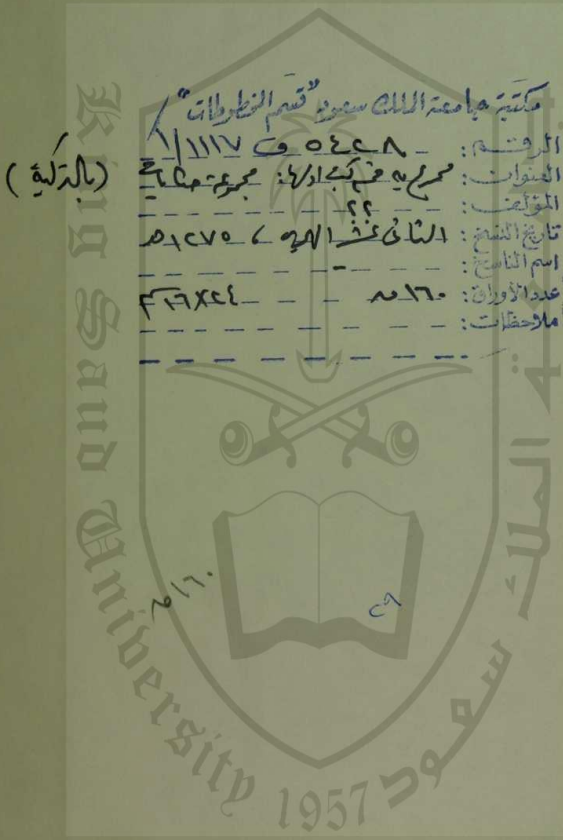 مكتبة جامعة الملك سعود "قسم المخطوطات"
الرقم: ٥٤٢٨ ف ١١١٧/١
العنوان: مجموع به كتب أولها: مجموعة حكايات (بالتركية)
المؤلف: ؟؟
تاريخ النسخ: الثاني عشر الهجري، ١٢٧٥هـ
اسم الناسخ: -
عدد الأوراق: ١٦٠
ملاحظات:
١٦٠
٢٩
King Saud University
1957
جامعة الملك سعود